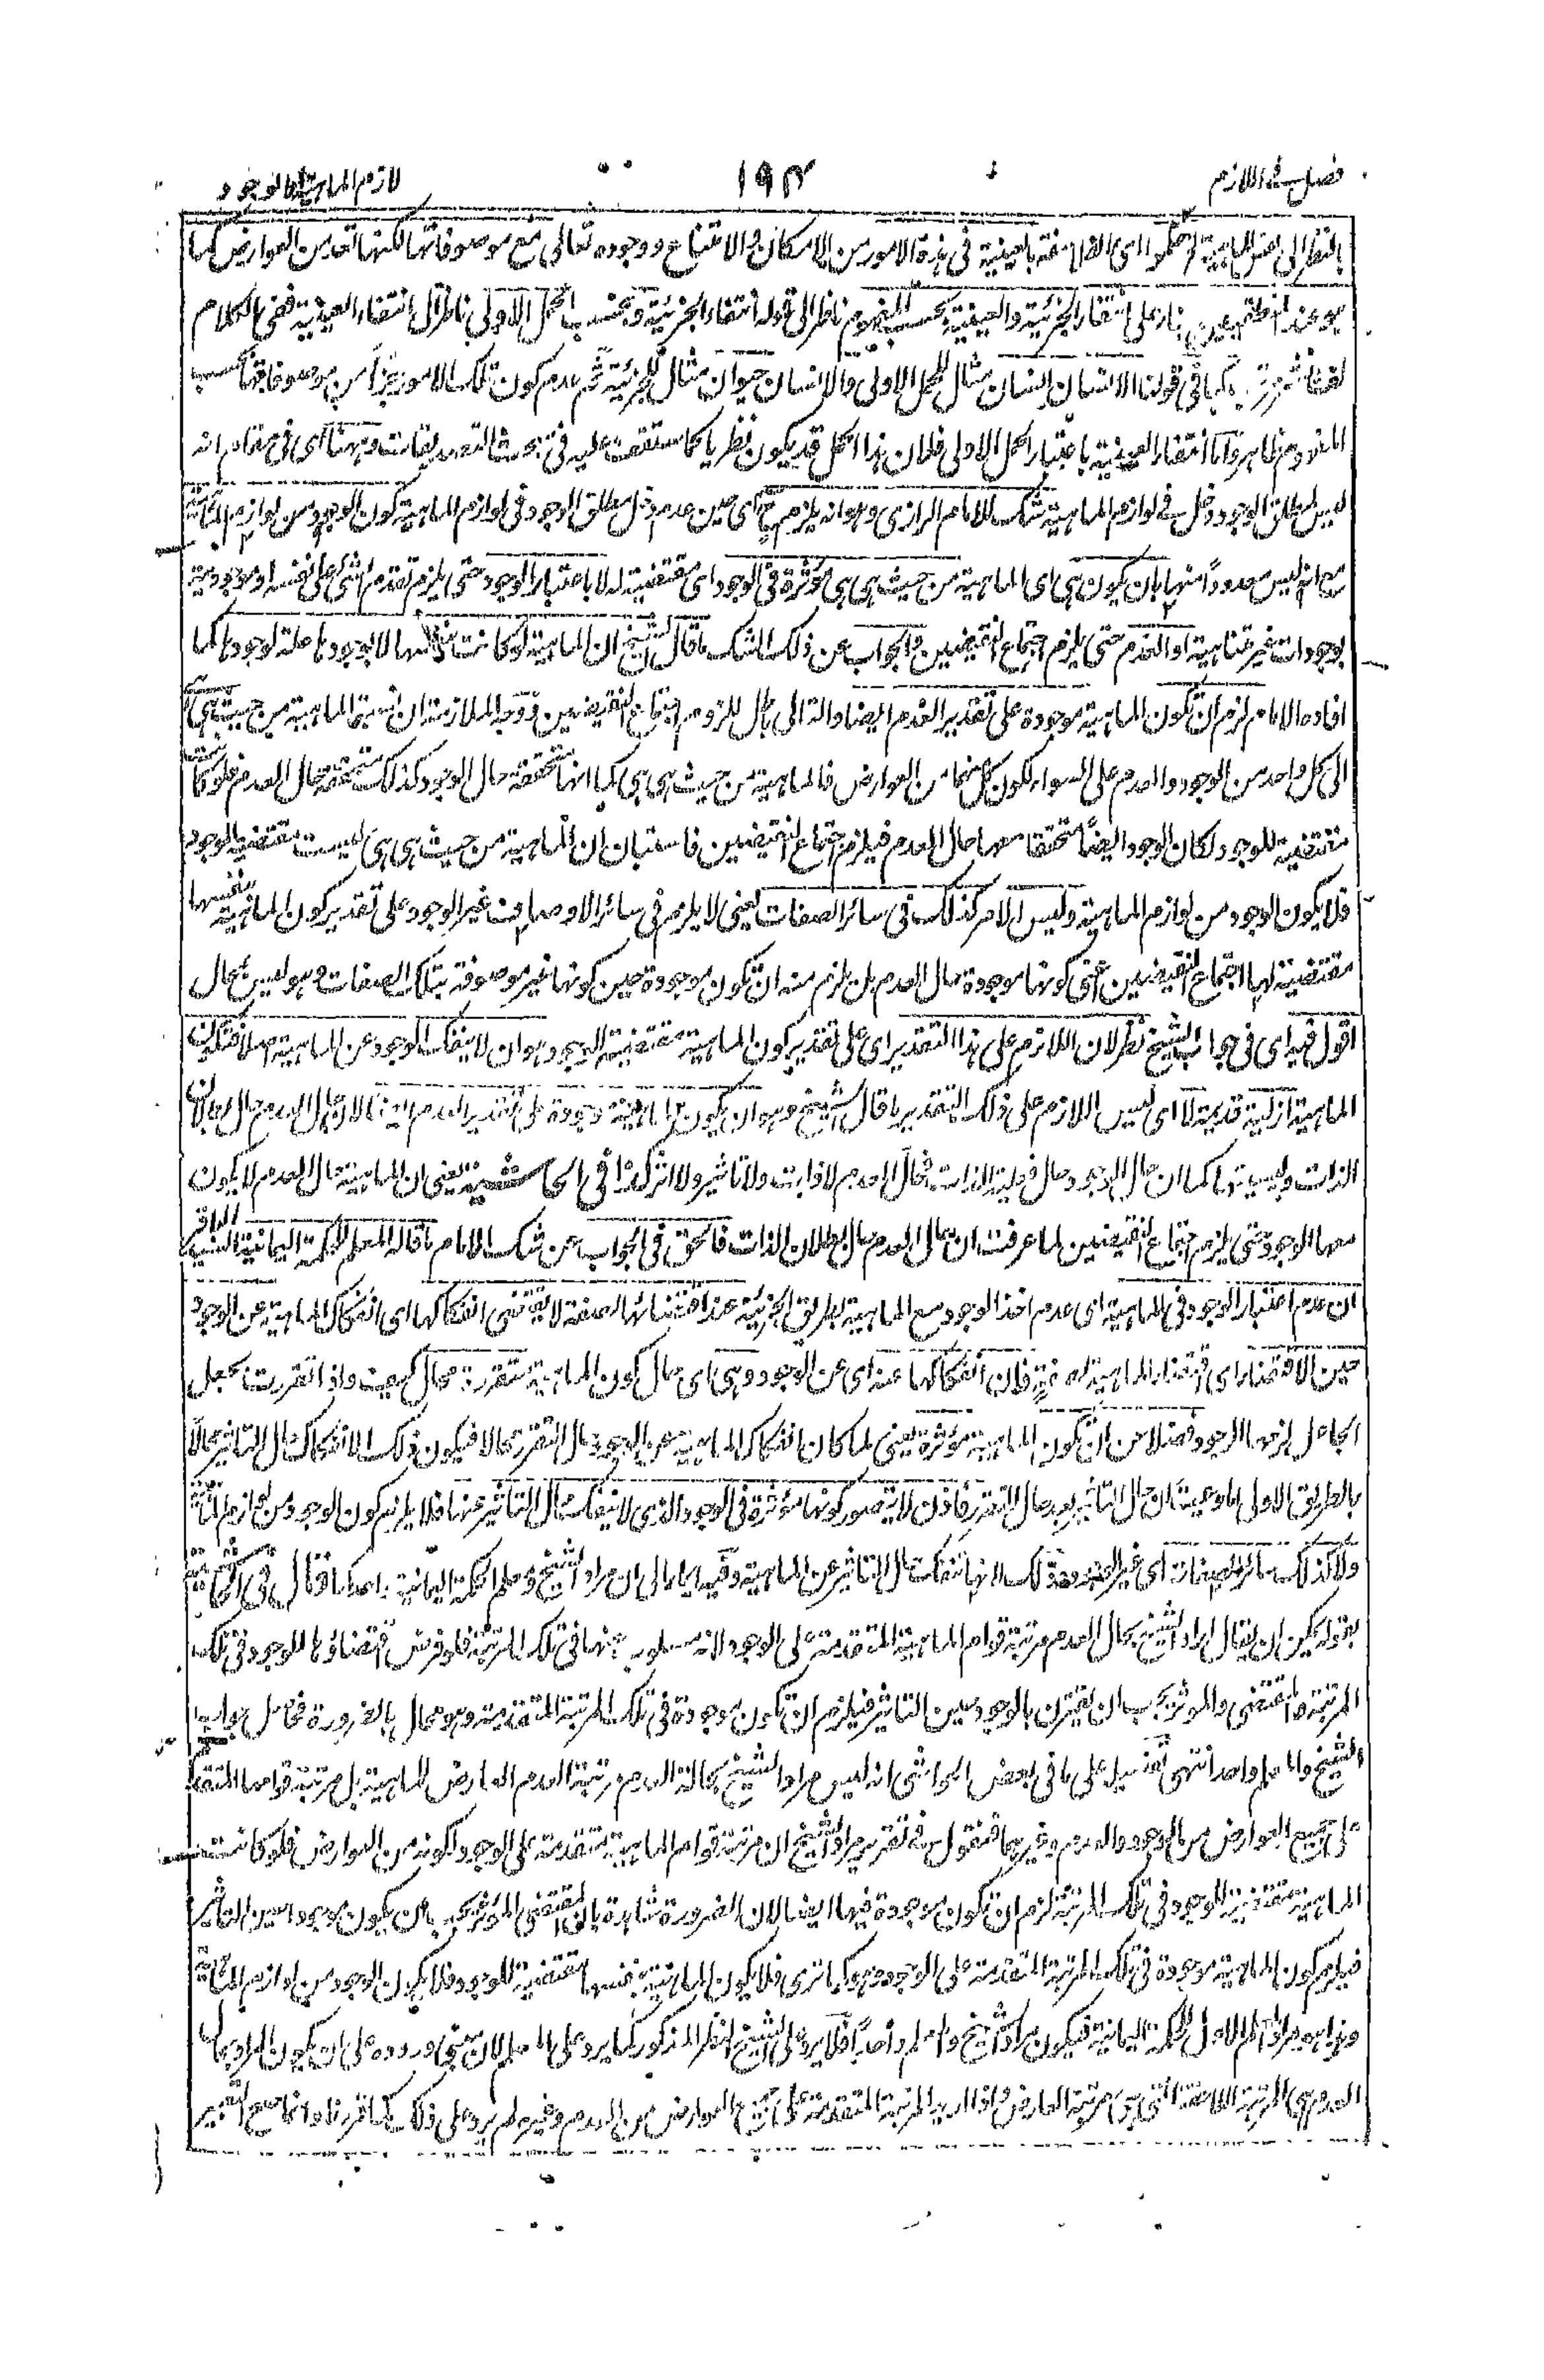 فصل فی اللازم ١٩٣ لازم الماهیة والوجود
بالنظر الی نفس الماهیة لم یحکموا ای الفلاسفة بالعینیة فی هذه الامور من الامکان والامتناع ووجوده تعالی مع موصوفاتها لکنها من العوارض کما
هو عند المتکلمین بناء علی انتفاء الجزئیة والعینیة بحسب المفهوم ناظر الی قوله انتفاء الجزئیة وبحسب الحمل الاولی ناظر الی انتفاء العینیة ففی الکلام
لف ونشر کما فی قولنا الانسان انسان مثال للحمل الاولی والانسان حیوان مثال للجزئیة ثم عدم کون تلک الامور جزأ من موصوفاتها بحسب
المفهوم ظاهر واما انتفاء العینیة باعتبار الحمل الاولی فلان هذا الحمل قد یکون نظریا کما ستقف علیه فی بحث التصدیقات وههنا ای فی مقام انه
لیس لمطلق الوجود دخل فی لوازم الماهیة شک للامام الرازی وهو انه یلزم ح ای حین عدم دخل مطلق الوجود فی لوازم الماهیة کون الوجود من لوازم الماهیة
مع انه لیس معدوداً منها بان یکون هی ای الماهیة من حیث هی هی مؤثرة فی الوجود ای مقتضیة له لا باعتبار الوجود حتی یلزم تقدم الشئ علی نفسه او موجودیته
بوجودات غیر متناهیة او العدم حتی یلزم اجتماع النقیضین والجواب عن ذلک الشک ما قال الشیخ ان الماهیة لو کانت بنفسها لا بوجودها علة لوجودها کما
افاده الامام لزم ان تکون الماهیة موجودة علی تقدیر العدم ایضا والتالی باطل للزوم اجتماع النقیضین ووجه الملازمة ان نسبة الماهیة من حیث هی
الی کل واحد من الوجود والعدم علی السواء لکون کل منهما من العوارض فالماهیة من حیث هی هی کما انها متحققة حال الوجود کذلک متحققة حال العدم فلو کانت
مقتضیة للوجود لکان الوجود ایضاً متحققا معها حال العدم فیلزم اجتماع النقیضین فاستبان ان الماهیة من حیث هی هی لیست مقتضیة للوجود
فلا یکون الوجود من لوازم الماهیة ولیس الامر کذلک فی سائر الصفات یعنی لا یلزم فی سائر الاوصاف غیر الوجود علی تقدیر کون الماهیة بنفسها
مقتضیة لها اجتماع النقیضین اعنی کونها موجودة حال العدم بل یلزم منه ان تکون موجودة حین کونها غیر موصوفة بتلک الصفات وهو لیس بمحال
اقول فیه ای فی جواب الشیخ نظر لان اللازم علی هذا التقدیر ای علی تقدیر کون الماهیة مقتضیة للوجود هو ان لا ینفک الوجود عن الماهیة اصلا فتکون
الماهیة ازلیة قدیمة لا ای لیس اللازم علی ذلک التقدیر ما قال الشیخ وهو ان یکون الماهیة موجودة علی تقدیر العدم ایضا لان حال العدم حال بطلان
الذات ولیسیتها کما ان حال الوجود حال فعلیة الذات فحال العدم لا ذات ولا تاثیر ولا اثر کذا فی الحاشیة یعنی ان الماهیة حال العدم لا یکون
معها الوجود حتی یلزم اجتماع النقیضین لما عرفت ان حال العدم حال بطلان الذات فالحق فی الجواب عن شک الامام ما قاله المعلم للحکمة الیمانیة السید الباقر
ان عدم اعتبار الوجود فی الماهیة ای عدم اخذ الوجود مع الماهیة بطریق الجزئیة عند اقتضائها لصفة لا یقتضی انفکاکها ای انفکاک الماهیة عن الوجود
حین الاقتضاء ای اقتضاء الماهیة لصفة فان انفکاکها عنه ای عن الوجود وهی ای حال کون الماهیة متقررة محال کیف واذا تقررت بجعل
الجاعل لزمها الوجود فضلا عن ان تکون الماهیة مؤثرة یعنی لما کان انفکاک الماهیة عن الوجود حال التقرر محالا فیکون ذلک الانفکاک حال التاثیر محالاً
بالطریق الاولی لان حال التاثیر بعد حال التقرر فاذن لا یتصور کونها مؤثرة فی الوجود الذی لا ینفک حال التاثیر عنها فلا یلزم کون الوجود من لوازم الماهیة
ولا کذلک سائر الصفات ای غیر الوجود وذلک لانها تنفک حال التاثیر عن الماهیة وفیه ایماء الی ان مراد الشیخ ومعلم الحکمة الیمانیة واحد کما قال فی الحاشیة
بقوله یمکن ان یقال اراد الشیخ بحال العدم مرتبة قوام الماهیة المتقدمة علی الوجود لانه مسلوب عنها فی تلک المرتبة فلو فرض اقتضاؤها للوجود فی تلک
المرتبة والمقتضی والمؤثر یجب ان یقترن بالوجود حین التاثیر فیلزم ان تکون موجودة فی تلک المرتبة المتقدمة وهو محال بالضرورة فحاصل جواب
الشیخ والمعلم واحد انتهی تفصیله علی ما فی بعض الحواشی انه لیس مراد الشیخ بحالة العدم مرتبة العدم العارض للماهیة بل مرتبة قوامها المتقدمة
علی جمیع العوارض من الوجود والعدم وغیرهما فنقول فی تقریر مراد الشیخ ان مرتبة قوام الماهیة متقدمة علی الوجود لکونه من العوارض فلو کانت
الماهیة مقتضیة للوجود فی تلک المرتبة لزم ان تکون موجودة فیها ایضا لان الضرورة شاهدة بان المقتضی المؤثر یجب ان یکون موجودا حین التاثیر
فیلزم کون الماهیة موجودة فی تلک المرتبة المتقدمة علی الوجود وهو کما تری فلا یکون الماهیة بنفسها مقتضیة للوجود فلا یکون الوجود من لوازم الماهیة
وهذا هو مراد المعلم الاول للحکمة الیمانیة فیکون مراد الشیخ والمعلم واحداً فلا یرد علی الشیخ النظر المذکور کما یرد علی المعلم لان مبنی وروده علی ان یکون المراد بحال
العدم هی المرتبة التی هی مرتبة العارض واذا ارید المرتبة المتقدمة علی جمیع العوارض من العدم وغیره لم یرد علی ذلک کما قررنا